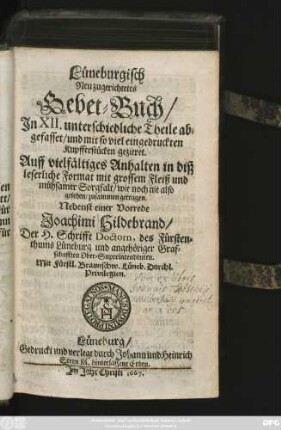 Lüneburgisch
Neu zugerichtetes
Gebet-Buch/
In XII. unterschiedliche Theile ab-
gefasset/ und mit so viel eingedruckten
Kupfferstücken gezieret.
Auff vielfältiges Anhalten in diß
leserliche Format mit grossem Fleiß und
mühsamer Sorgfalt/ wie noch nie also
gesehen/ zusammengetragen.
Nebenst einer Vorrede
Joachimi Hildebrand/
Der H. Schrifft Doctorn, des Fürsten-
thums Lüneburg und angehöriger Graf-
schafften Ober-Superintendenten.
Mit Fürstl. Braunschw. Lüneb. Durchl.
Privilegien.
Lüneburg/
Gedruckt und verlegt durch Johann und Heinrich
Stern sel. hinterlassene Erben.
Im Jahr Christi